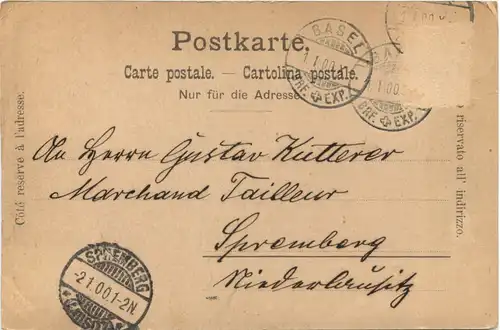 Postkarte.
Carte postale. — Cartolina postale.
Nur für die Adresse.
Côté réservé à l'adresse.
o riservato all' indirizzo.
BASEL
1.I.00
BRF. EXP.
BASEL
I.00
BRF. EXP.
I.00
An Herrn Gustav Kutterer
Marchand Tailleur
Spremberg
Niederlausitz
SPREMBERG
-2.1.00.1-2N.